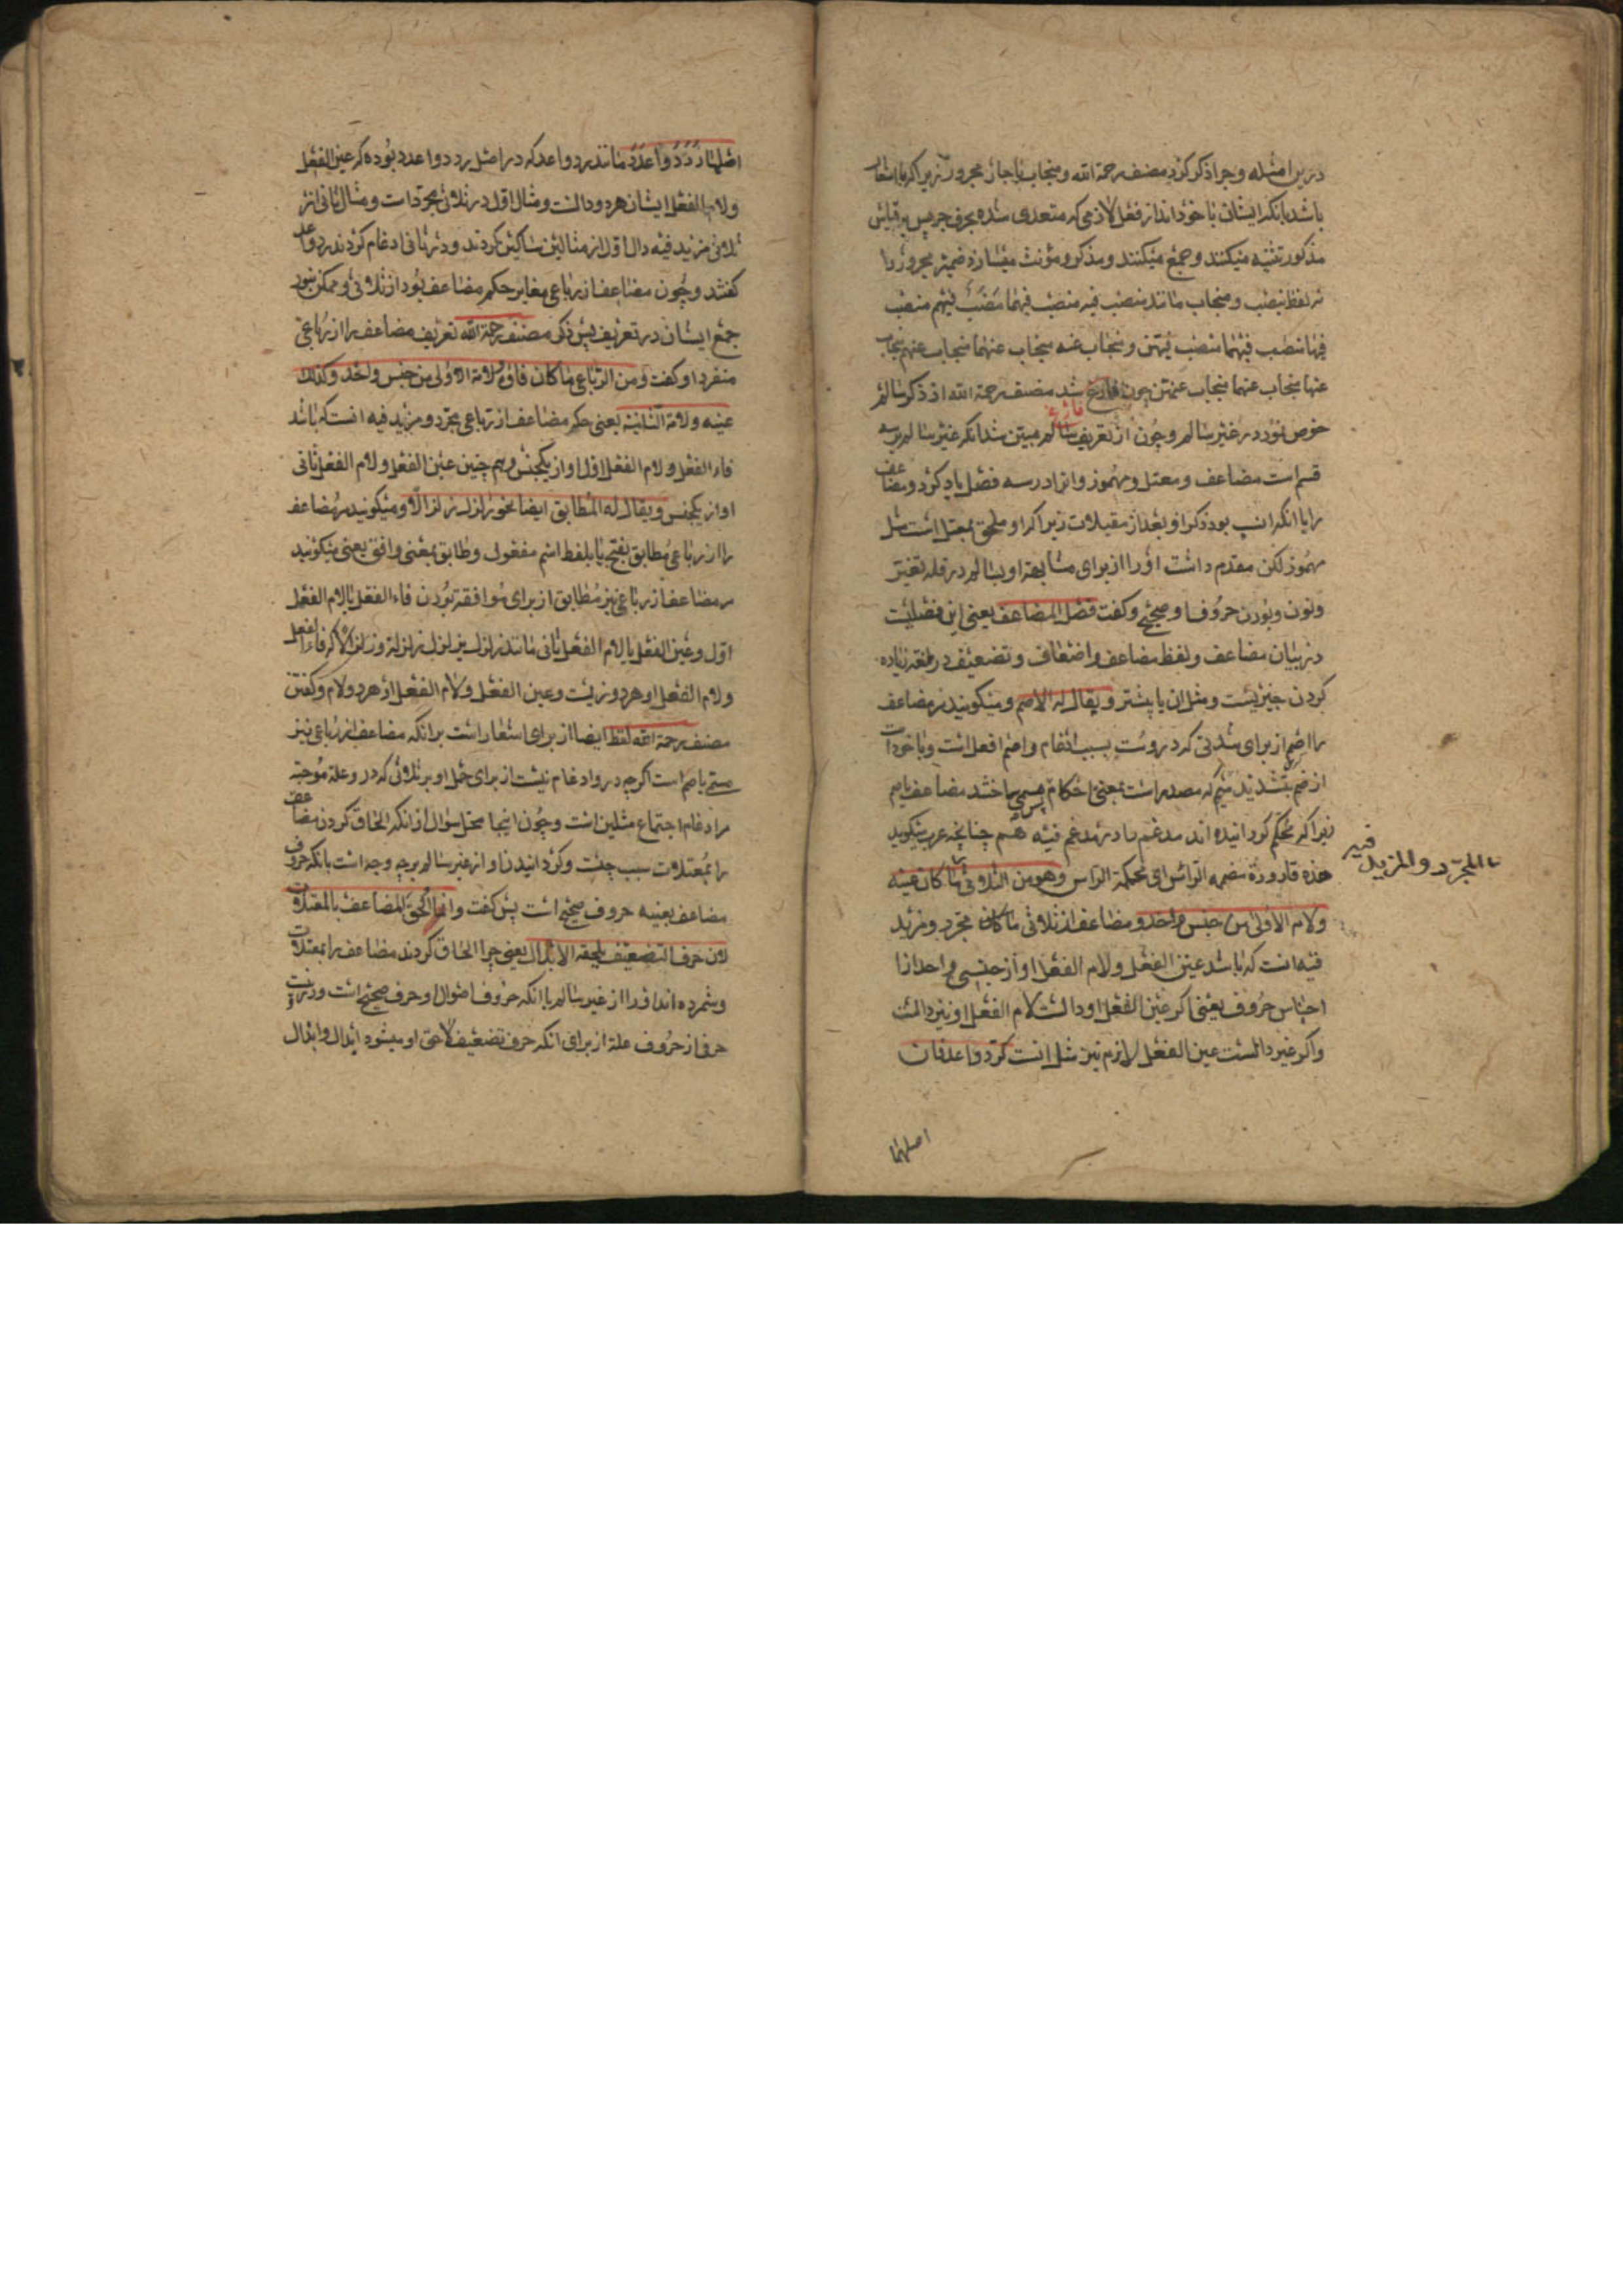 درین امثله و چرا ذکر کرد مصنف رحمة الله و منجاب با جاز مجرور زیرا که با اشعار
باشد بانکه ایشان با خود اند از فعل لازمی که متعدی شده بحرف جر پس بر قیاس
مذکور تثنیه میکنند و جمع میکنند و مذکر و مؤنث میسازد ضمیر مجرور را
نه لفظ ینصب و منجاب مانند منصب فیه منصب فیهما منصب فیهم منصب
فیها منصب فیهما منصب فیهن و منجاب عنه منجاب عنهما منجاب عنهم منجاب
عنها منجاب عنهما منجاب عنهن چون فارغ شد مصنف رحمة الله از ذکر سالم
فارغ
خوض نمود در غیر سالم و چون از تعریف سالم مبین شد انکه غیر سالم بر سه
قسم است مضاعف و معتل و مهموز و انرا در سه فصل یاد کرد و مضاعف
را با انکه انسب بود ذکر او بعد از معتلات زیرا که او ملحق بمعتل است مثل
مهموز لکن مقدم داشت او را از برای مشابهة او بسالم در قلة تغیر
ونون وبودن حروف او صحیح و کفت فصل المضاعف یعنی این فصلیست
در بیان مضاعف و لفظ مضاعف و اضعاف و تضعیف در لغة زیاده
کردن چیزیست و مثل ان یا بیشتر و یقال له الاصم و میکویند مر مضاعف
را اصم از برای شدتی که دروست بسبب ادغام و اصم افعل است و باخوذات
از صم بتشدید میم که مصدر است بمعنی احکام پس مسمی ساختند مضاعف باصم
زیرا که محکم کردانیده اند مدغم را در مدغم فیه هم چنانچه عرب میکوید
هذه قارورة مصممة الراس ای محکمة الراس وهو من الثلاثی ما کان عینه
المجرد والمزید فیه
ولام الاولی من جنس واحد و مضاعف از ثلاثی ما کان مجرد و مزید
فیه انست که باشد عین الفعل و لام الفعل او از جنسی واحد از ا
اجناس حروف یعنی اکر عین الفعل او دالست لام الفعل او نیز دالست
واکر غیر دالست عین الفعل لازم نیز مثل انست کرد واعد فان
اصلهما
اصلهما ردد واعدد مانند رد و اعد که در اصل ردد و اعدد بوده که عین الفعل
ولام الفعل ایشان هر دو دالست و مثال اول در ثلاثی مجرد است و مثال ثانی از
ثلاثی مزید فیه دال اول از مثالین ساکن کردند و در ثانی ادغام کردند رد و اعد
کفتند و چون مضاعف از رباعی مغایر حکم مضاعف بود از ثلاثی و ممکن نبود
جمع ایشان در تعریف پس ذکر مصنف رحمة الله تعریف مضاعف را از رباعی
منفردا و کفت ومن الرباعی ما کان فاؤه ولامه الاولی من جنس واحد وکذلک
عینه ولامه الثانیة یعنی حکم مضاعف از رباعی مجرد و مزید فیه انست که باشد
فاء الفعل و لام الفعل اول او از یکجنس و هم چنین عین الفعل و لام الفعل ثانی
او از یکجنس ویقال له المطابق ایضا نحو زلزل زلزالا و میکویند مر مضاعف
را از رباعی مطابق بفتح با بلفظ اسم مفعول و طابق بمعنی وافق یعنی میکویند
مر مضاعف از رباعی نیز مطابق از برای موافقة بودن فاء الفعل با لام الفعل
اول و عین الفعل با لام الفعل ثانی مانند زلزل یزلزل زلزلة و زلزالا که فاء الفعل
ولام الفعل او هر دو زیست و عین الفعل و لام الفعل او هر دو لام و کفتن
مصنف رحمة الله لفظ ایضا از برای اشعار است بر انکه مضاعف از رباعی نیز
مسمی باصم است اکرچه درو ادغام نیست از برای حمل او بر ثلاثی که در و علة موجبه
مر ادغام اجتماع مثلین است و چون اینجا محل سؤال از انکه الحاق کردن مضاعف
را بمعتلات سبب چیست و کردانیدن او از غیر سالم بر چه وجه است بانکه حروف
مضاعف بعینه حروف صحیح است پس کفت وانما الحق المضاعف بالمعتلات
لان حرف التضعیف یلحقه الابدال یعنی چرا الحاق کردند مضاعف را بمعتلات
و شمرده اند او را از غیر سالم با انکه حروف اصول او حرف صحیح است و نیست
حرفی از حروف علة از برای انکه حرف تضعیف لاحق او میشود ابدال و ابدال